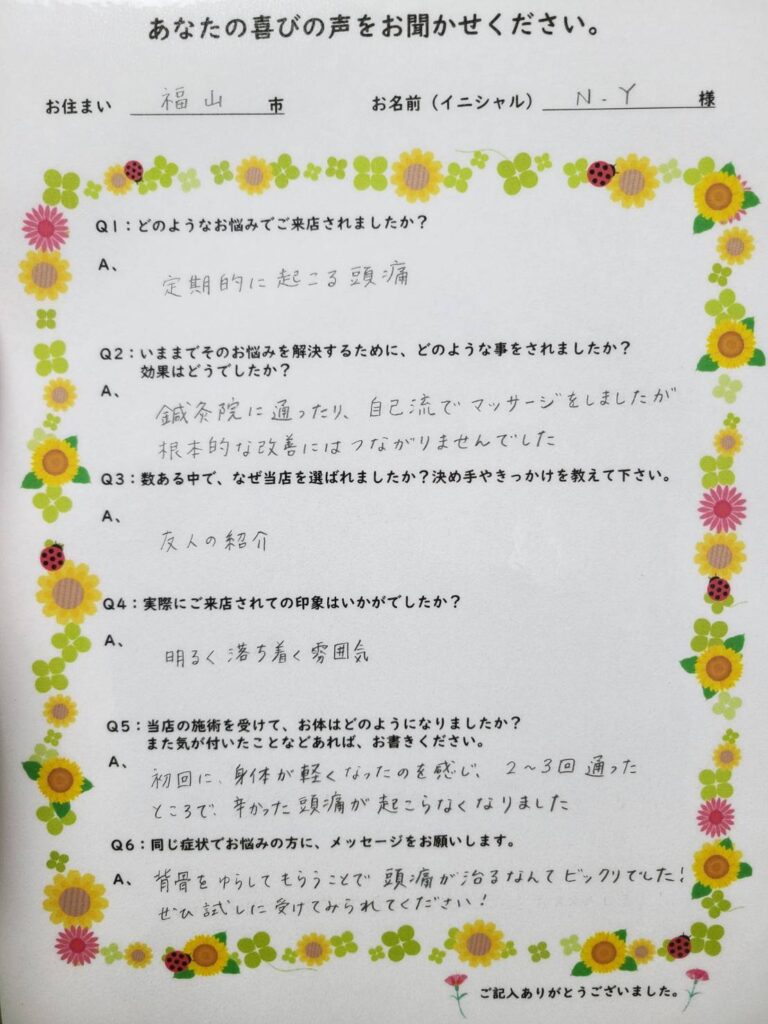 あなたの喜びの声をお聞かせください。
お住まい 福山 市 お名前（イニシャル） N.Y 様
Q1：どのようなお悩みでご来店されましたか？
A、 定期的に起こる頭痛
Q2：いままでそのお悩みを解決するために、どのような事をされましたか？
効果はどうでしたか？
A、 鍼灸院に通ったり、自己流でマッサージをしましたが
根本的な改善にはつながりませんでした
Q3：数ある中で、なぜ当店を選ばれましたか？決め手やきっかけを教えて下さい。
A、 友人の紹介
Q4：実際にご来店されての印象はいかがでしたか？
A、 明るく落ち着く雰囲気
Q5：当店の施術を受けて、お体はどのようになりましたか？
また気が付いたことなどあれば、お書きください。
A、 初回に、身体が軽くなったのを感じ、2〜3回通った
ところで、辛かった頭痛が起こらなくなりました
Q6：同じ症状でお悩みの方に、メッセージをお願いします。
A、 背骨をゆらしてもらうことで頭痛が治るなんてビックリでした！
ぜひ試しに受けてみられてください！
ご記入ありがとうございました。